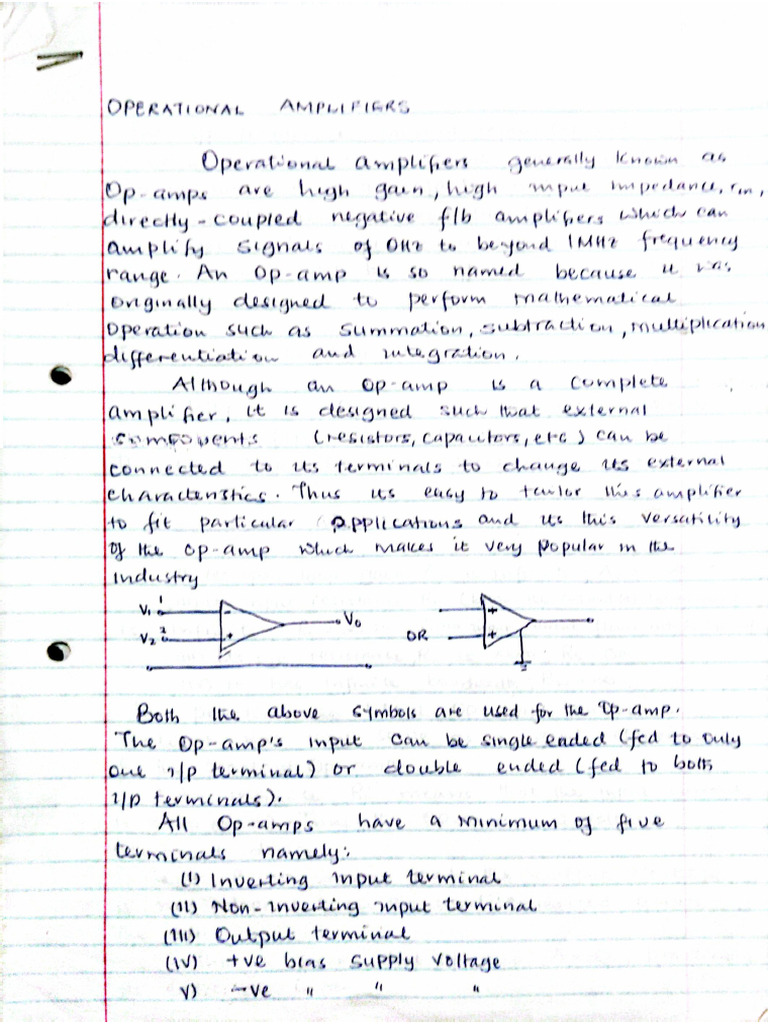 OPERATIONAL AMPLIFIERS
Operational amplifiers generally known as
Op-amps are high gain, high input impedance, rin,
directly-coupled negative f/b amplifiers which can
amplify signals of 0Hz to beyond 1MHz frequency
range. An Op-amp is so named because it was
originally designed to perform mathematical
operation such as summation, subtraction, multiplication
differentiation and integration.
Although an op-amp is a complete
amplifier, it is designed such that external
components (resistors, capacitors, etc) can be
connected to its terminals to change its external
characteristics. Thus its easy to tailor this amplifier
to fit particular applications and its this versatility
of the op-amp which makes it very popular in the
industry
V1 1 - Vo +
V2 2 + OR +
Both the above symbols are used for the op-amp.
The Op-amp's input can be single ended (fed to only
one i/p terminal) or double ended (fed to both
i/p terminals).
All Op-amps have a minimum of five
terminals namely:
(i) Inverting input terminal
(ii) Non-inverting input terminal
(iii) Output terminal
(iv) +ve bias supply voltage
v) -ve " " "